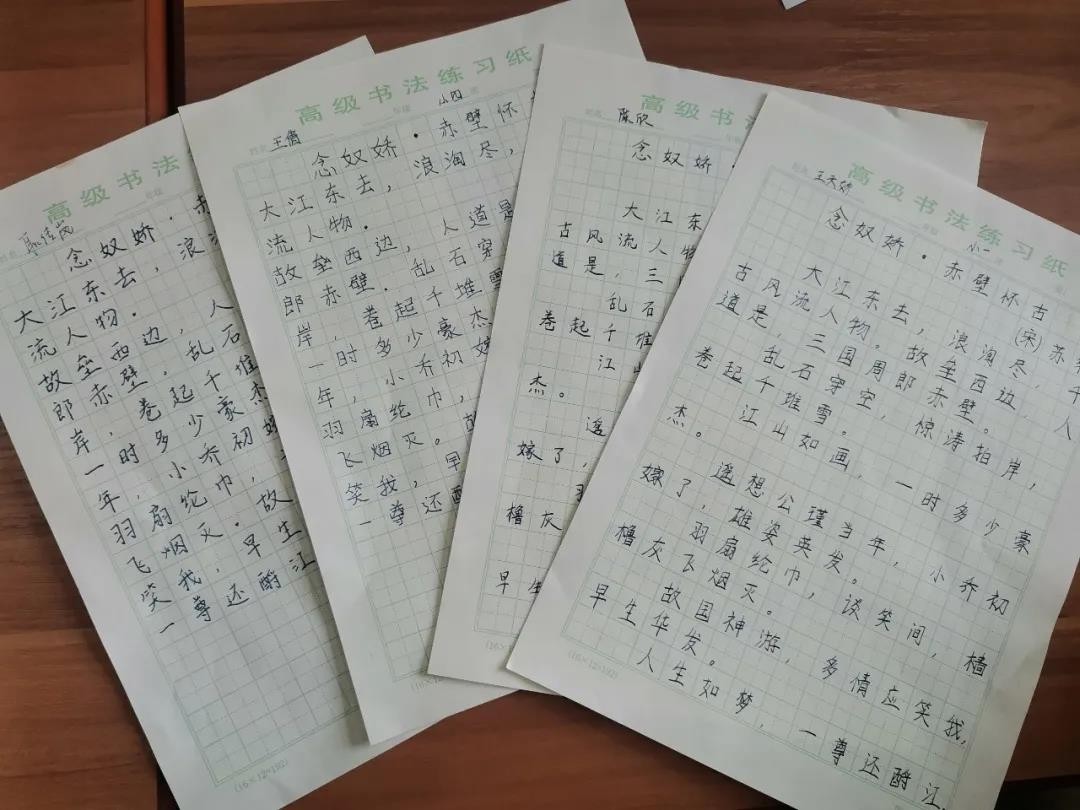 高级书法练
姓名
年级
念奴娇·赤
大江东去，浪
流人物.
故垒西边，人
郎赤壁.乱石
岸，卷起千堆
一时多少豪杰
年，小乔初嫁
羽扇纶巾，
飞烟灭.故
笑我，早生
一尊还酹江
(16×12=192)
高级书法练习纸
姓名 王倩 年级 小四 班
念奴娇·赤壁怀
大江东去，浪淘尽，
流人物.
故垒西边，人道是
郎赤壁.乱石穿
岸，卷起千堆雪
一时多少豪杰
年，小乔初嫁
羽扇纶巾，
飞烟灭。故
笑我，早
一尊还酹
高级书法练习
姓名 陈欣 年级
念奴娇·
大江东
古风流人物
道是，三
乱石
卷起千堆
江山
杰。
遥
嫁了，
羽
橹灰
早生
(16×12=192)
高级书法练习纸
姓名 王天娇 年级 小一
念奴娇·赤壁怀古
(宋)苏
大江东去，浪淘尽，千
古风流人物。故垒西边，人
道是三国周郎赤壁。
乱石穿空，惊涛拍岸，
卷起千堆雪。
江山如画，一时多少豪
杰。
遥想公瑾当年，小乔初
嫁了，雄姿英发。
羽扇纶巾，谈笑间，樯
橹灰飞烟灭。
故国神游，多情应笑我，
早生华发。
人生如梦，一尊还酹江
(16×12=192)